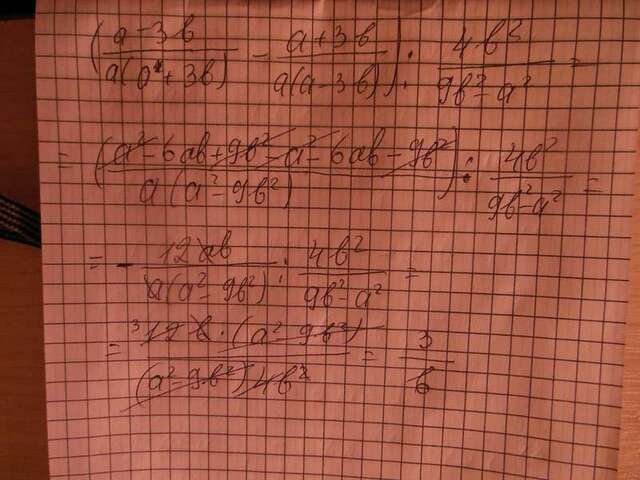 (a-3b/a(a+3b) - a+3b/a(a-3b)) : 4b²/9b²-a² =
= (a²-6ab+9b²-a²-6ab-9b²/a(a²-9b²)) : 4b²/9b²-a² =
= - 12ab/a(a²-9b²) : 4b²/9b²-a² =
= 3 12b·(a²-9b²)/(a²-9b²)4b² = 3/b